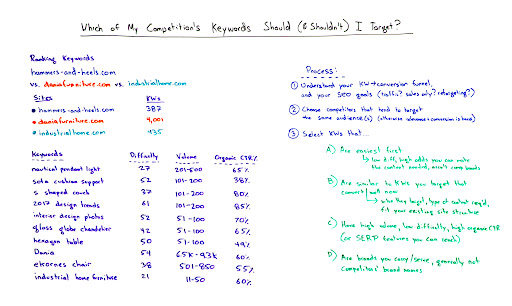 Which of My Competition's Keywords Should (& Shouldn't) I Target?
Ranking Keywords
hammers-and-heels.com
vs. daniafurniture.com vs. industrialhome.com
Sites KWs
• hammers-and-heels.com 387
• daniafurniture.com 4,001
• industrialhome.com 435
Keywords Difficulty Volume Organic CTR%
nautical pendant light 27 201-500 65%
sofa cushion support 52 101-200 38%
s shaped couch 37 101-200 80%
2017 design trends 61 101-200 85%
interior design photos 52 51-100 70%
glass globe chandelier 42 51-100 65%
hexagon table 50 51-100 49%
Dania 54 65K-93K 60%
ekornes chair 38 501-850 55%
industrial home furniture 21 11-50 60%
Process:
① Understand your KW→conversion funnel,
and your SEO goals (traffic? sales only? retargeting?)
② Choose competitors that tend to target
the same audience(s) (otherwise relevance + conversion is hard)
③ Select KWs that...
A) Are easiest first
low diff, high odds you can make
the content needed,
B) Are similar to KWs you target that
convert well now
who they target, type of content req'd,
fit your existing site structure
C) Have high volume, low difficulty, high organic CTR
(or SERP features you can reach)
D) Are brands you carry/serve, generally not
competitors' brand names